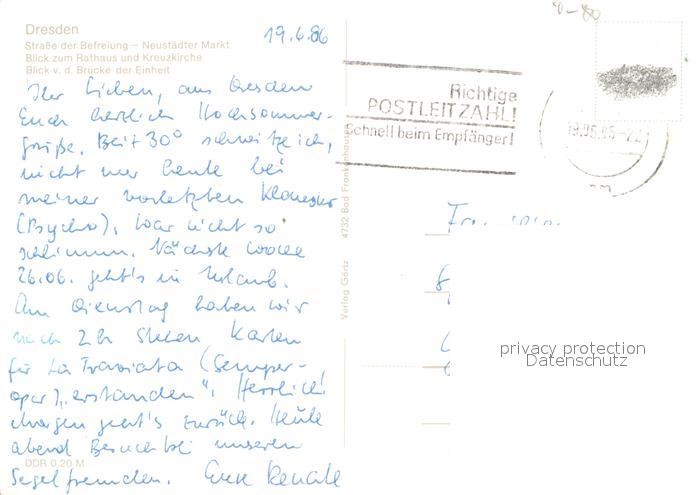 Dresden
Straße der Befreiung – Neustädter Markt
Blick zum Rathaus und Kreuzkirche
Blick v. d. Brücke der Einheit
19.6.86
Ihr Lieben, aus Dresden
Euch herzlich Hochsommer-
grüße. Bei +30° schwitze ich,
nicht nur heute bei
meiner vorletzten Klausur
(Psycho), war nicht so
schlimm. Nächste Woche
26.06. geht's in Urlaub.
Am Dienstag haben wir
nach 2h Stehen Karten
für La Traviata (Semper-
oper) „erstanden". Herrlich!
Morgen geht's zurück. Heute
abend Besuch bei unseren
Segelfreunden. Eure Renate
DDR 0,20 M
Verlag Görtz 4732 Bad Frankenhausen
Richtige
POSTLEITZAHL!
Schnell beim Empfänger!
19.06.86-22
privacy protection
Datenschutz